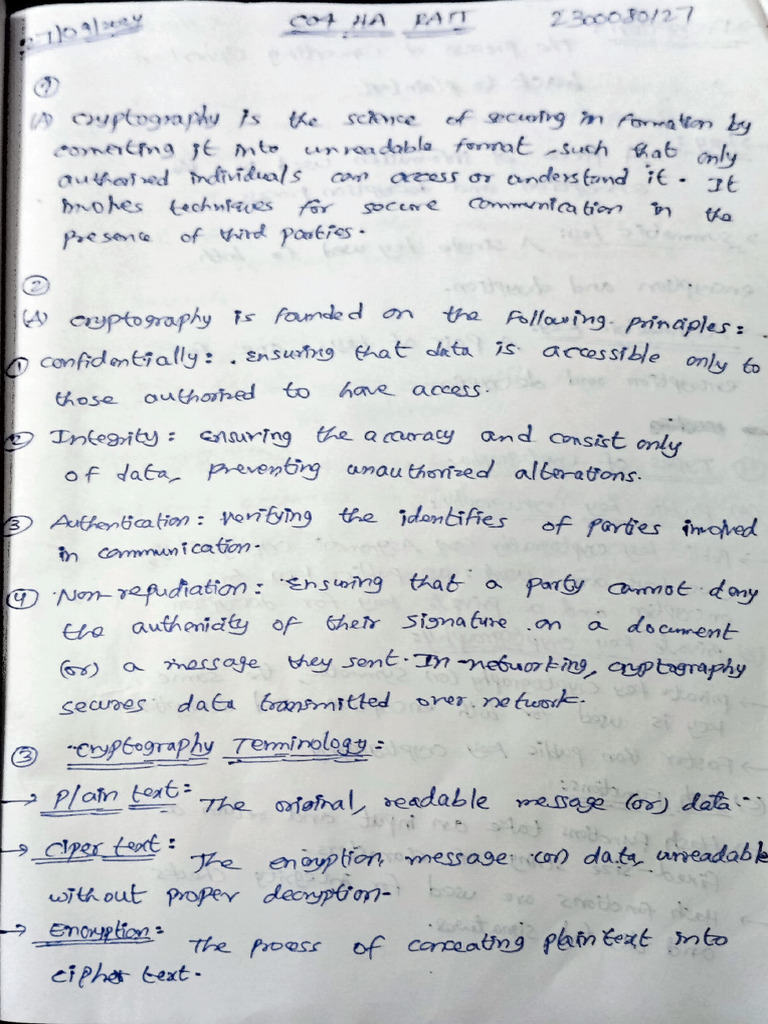 27/09/2024 CO4 HA PAIT 2300080127
①
(A) cryptography is the science of securing in formation by
converting it into unreadable format such that only
authorized individuals can access or understand it. It
involves techniques for secure communication in the
presence of third parties.
②
(A) cryptography is founded on the following principles:
① confidentially: ensuring that data is accessible only to
those authorized to have access.
② Integrity: ensuring the accuracy and consist only
of data, preventing unauthorized alterations.
③ Authentication: verifying the identifies of parties involved
in communication.
④ Non-repudiation: ensuring that a party cannot deny
the authenicity of their signature on a document
(or) a message they sent. In-networking, cryptography
secures data transmitted over network.
③ cryptography Terminology:
→ Plain text: The original, readable message (or) data.
→ Ciper text: The encryption message (or) data, unreadable
without proper decryption-
→ Encryption: The process of plaintext into
cipher text.